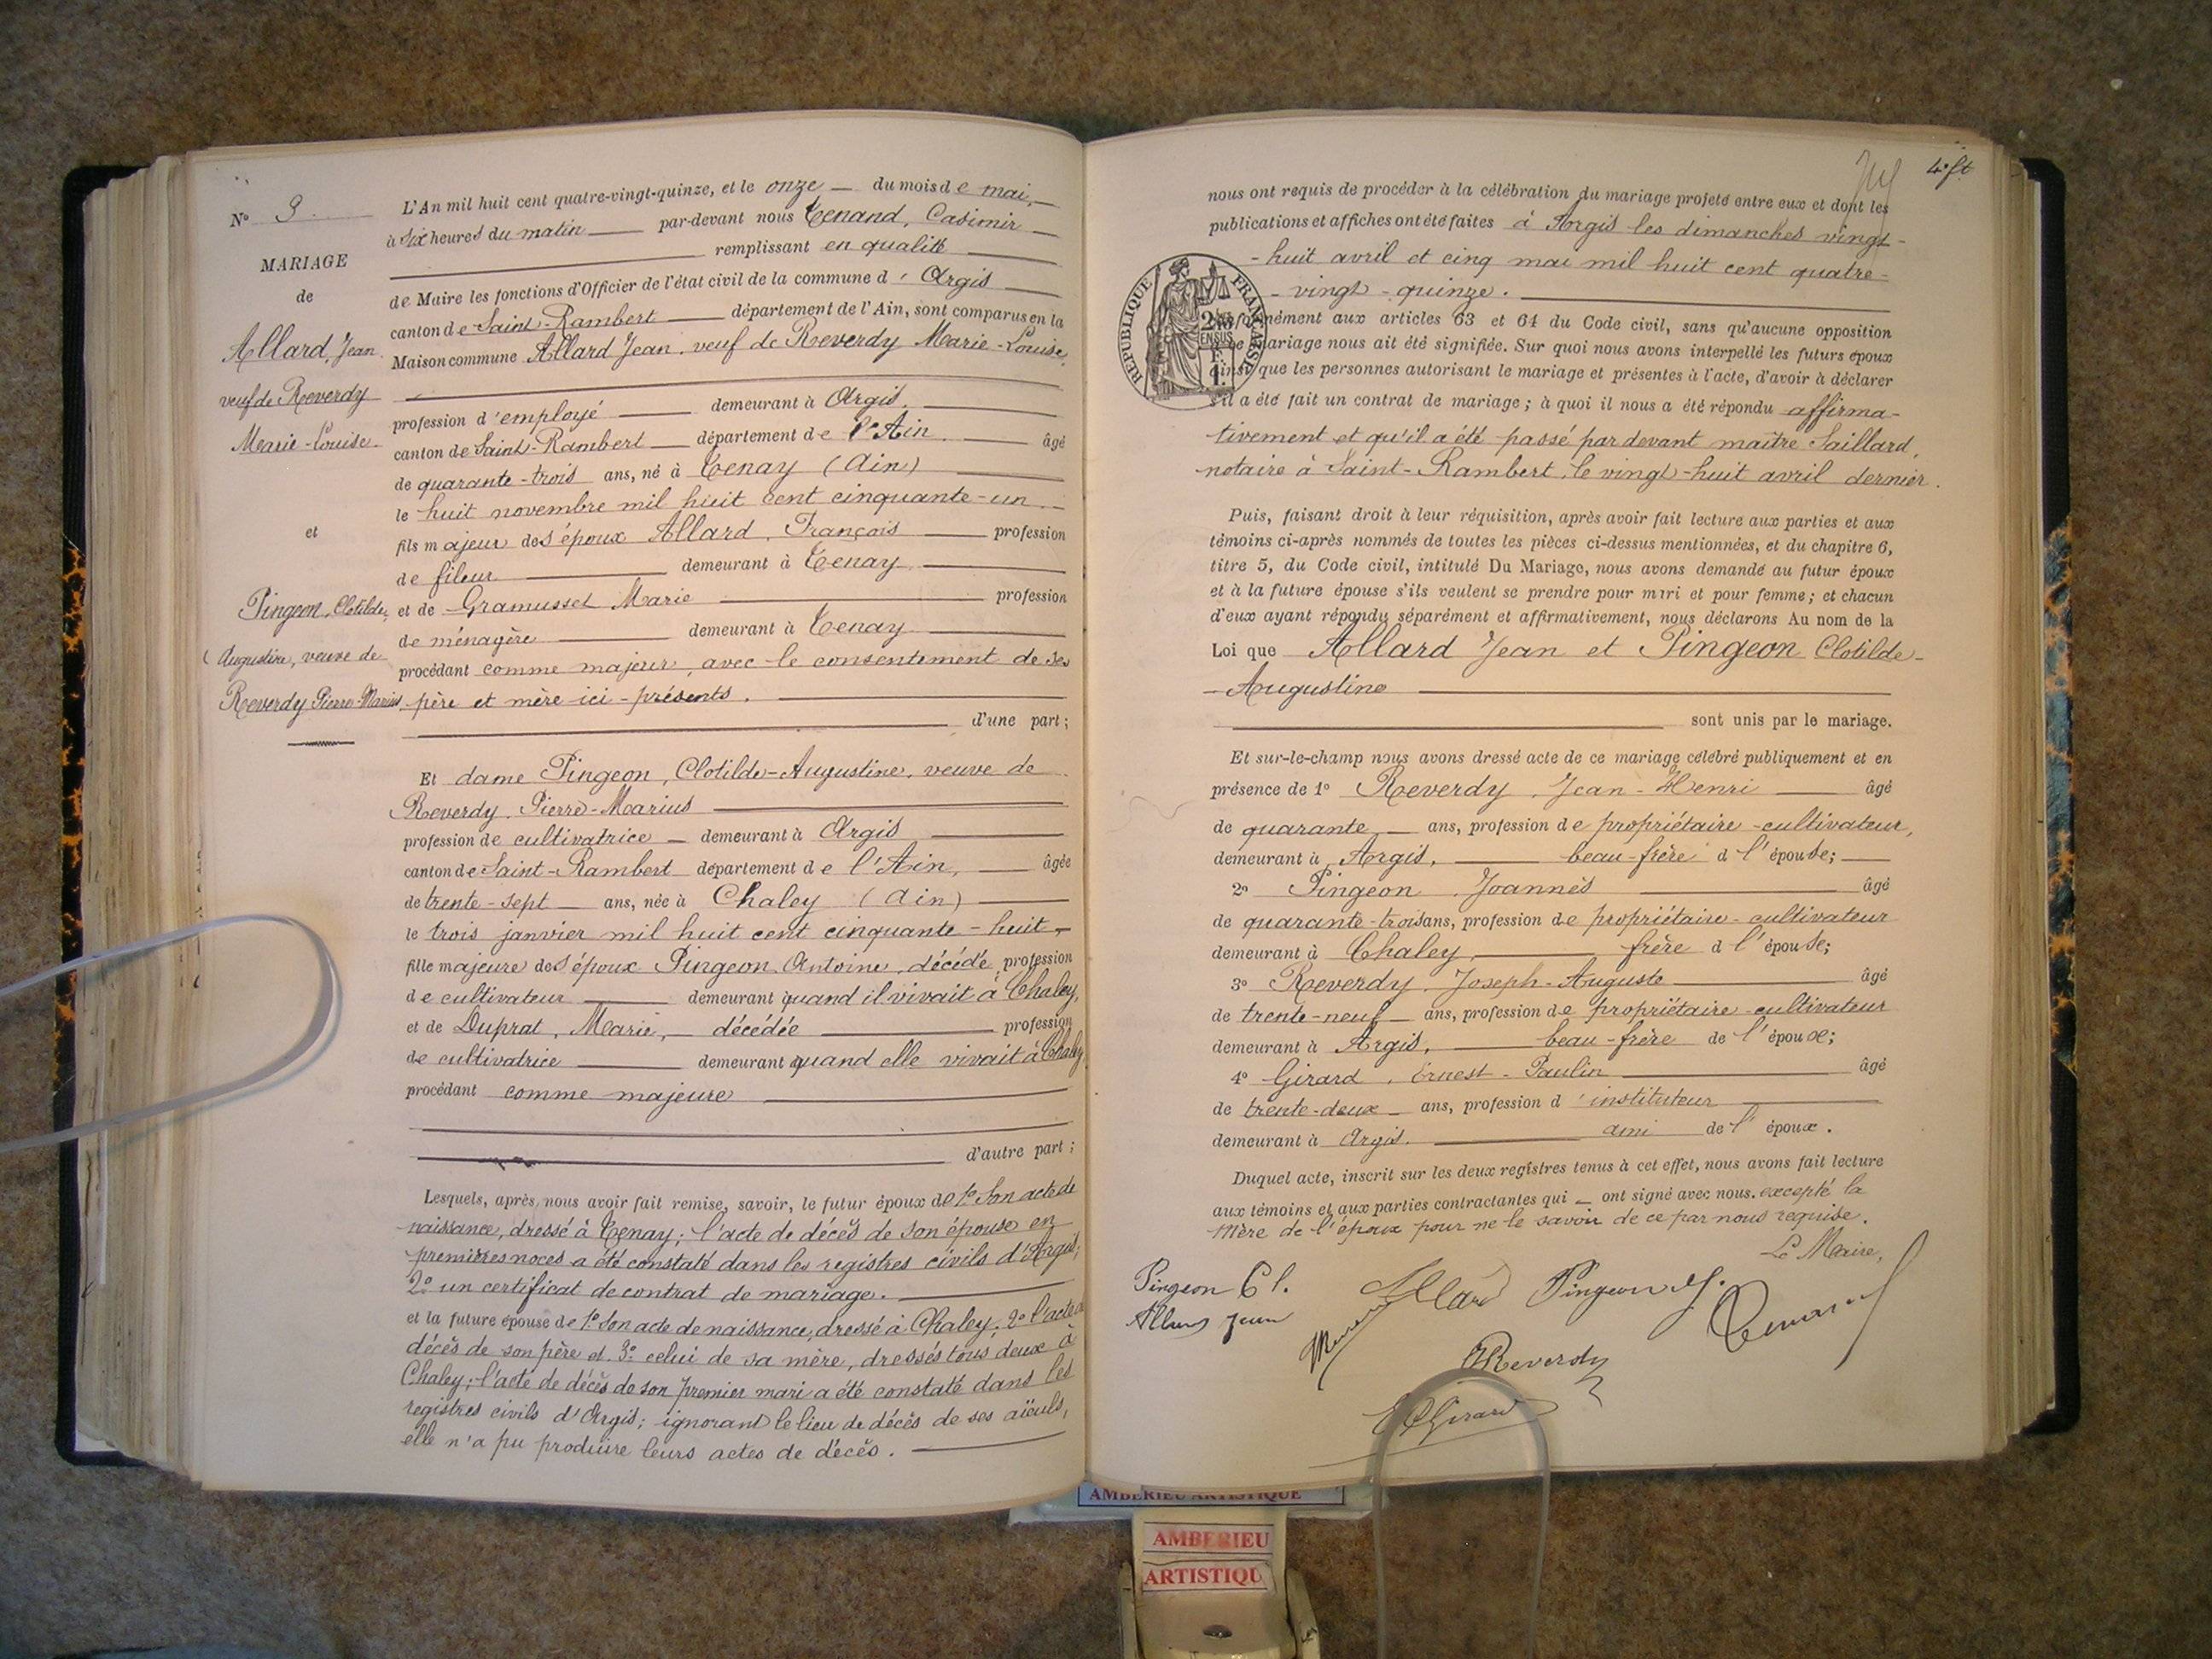 N° 3
MARIAGE
de
Allard, Jean
veuf de Reverdy
Marie-Louise
et
Pingeon, Clotilde,
Augustine, veuve de
Reverdy Pierre-Marius
L'An mil huit cent quatre-vingt-quinze, et le onze du mois de mai,
à six heures du matin par-devant nous Tenand, Casimir
remplissant en qualité
de Maire les fonctions d'Officier de l'état civil de la commune d'Argis
canton de Saint-Rambert département de l'Ain, sont comparus en la
Maison commune Allard Jean, veuf de Reverdy Marie-Louise,
profession d'employé demeurant à Argis.
canton de Saint-Rambert département de l'Ain âgé
de quarante-trois ans, né à Tenay (Ain)
le huit novembre mil huit cent cinquante-un.
fils majeur des époux Allard, François profession
de fileur demeurant à Tenay
et de Gramusset Marie profession
de ménagère demeurant à Tenay
procédant comme majeur, avec le consentement de ses
père et mère ici-présents.
d'une part;
Et dame Pingeon, Clotilde-Augustine, veuve de
Reverdy, Pierre-Marius
profession de cultivatrice demeurant à Argis
canton de Saint-Rambert département de l'Ain, âgée
de trente-sept ans, née à Chaley (Ain)
le trois janvier mil huit cent cinquante-huit
fille majeure des époux Pingeon, Antoine, décédé, profession
de cultivateur demeurant quand il vivait à Chaley,
et de Duprat, Marie, décédée profession
de cultivatrice demeurant quand elle vivait à Chaley
procédant comme majeure
d'autre part;
Lesquels, après nous avoir fait remise, savoir, le futur époux de 1° Son acte de
naissance, dressé à Tenay; l'acte de décès de son épouse en
premières noces a été constaté dans les registres civils d'Argis;
2° un certificat de contrat de mariage.
et la future épouse de 1° Son acte de naissance, dressé à Chaley; 2° l'acte de
décès de son père et 3° celui de sa mère, dressés tous deux à
Chaley; l'acte de décès de son premier mari a été constaté dans les
registres civils d'Argis; ignorant le lieu de décès de ses aïeuls,
elle n'a pu produire leurs actes de décès.
4e ft
nous ont requis de procéder à la célébration du mariage projeté entre eux et dont les
publications et affiches ont été faites à Argis les dimanches vingt-
-huit avril et cinq mai mil huit cent quatre-
-vingt-quinze.
RÉPUBLIQUE FRANÇAISE
conformément aux articles 63 et 64 du Code civil, sans qu'aucune opposition
à ce mariage nous ait été signifiée. Sur quoi nous avons interpellé les futurs époux
ainsi que les personnes autorisant le mariage et présentes à l'acte, d'avoir à déclarer
s'il a été fait un contrat de mariage; à quoi il nous a été répondu affirma-
tivement et qu'il a été passé par devant maître Saillard,
notaire à Saint-Rambert, le vingt-huit avril dernier.
Puis, faisant droit à leur réquisition, après avoir fait lecture aux parties et aux
témoins ci-après nommés de toutes les pièces ci-dessus mentionnées, et du chapitre 6,
titre 5, du Code civil, intitulé Du Mariage, nous avons demandé au futur époux
et à la future épouse s'ils veulent se prendre pour mari et pour femme; et chacun
d'eux ayant répondu séparément et affirmativement, nous déclarons Au nom de la
Loi que Allard Jean et Pingeon Clotilde-
-Augustine
sont unis par le mariage.
Et sur-le-champ nous avons dressé acte de ce mariage célébré publiquement et en
présence de 1° Reverdy, Jean-Henri âgé
de quarante ans, profession de propriétaire-cultivateur,
demeurant à Argis, beau-frère d l'épouse;
2° Pingeon, Joannès âgé
de quarante-trois ans, profession de propriétaire-cultivateur
demeurant à Chaley, frère d l'épouse;
3° Reverdy, Joseph-Auguste âgé
de trente-neuf ans, profession de propriétaire-cultivateur
demeurant à Argis, beau-frère de l'épouse;
4° Girard, Ernest-Paulin âgé
de trente-deux ans, profession d'instituteur
demeurant à Argis. ami de l'époux.
Duquel acte, inscrit sur les deux registres tenus à cet effet, nous avons fait lecture
aux témoins et aux parties contractantes qui ont signé avec nous. excepté la
mère de l'époux pour ne le savoir de ce par nous requise.
Le Maire,
Pingeon Cl. Allard Pingeon J. Tenand
Allard Jean
Reverdy
Girard
AMBERIEU ARTISTIQUE
AMBERIEU
ARTISTIQU